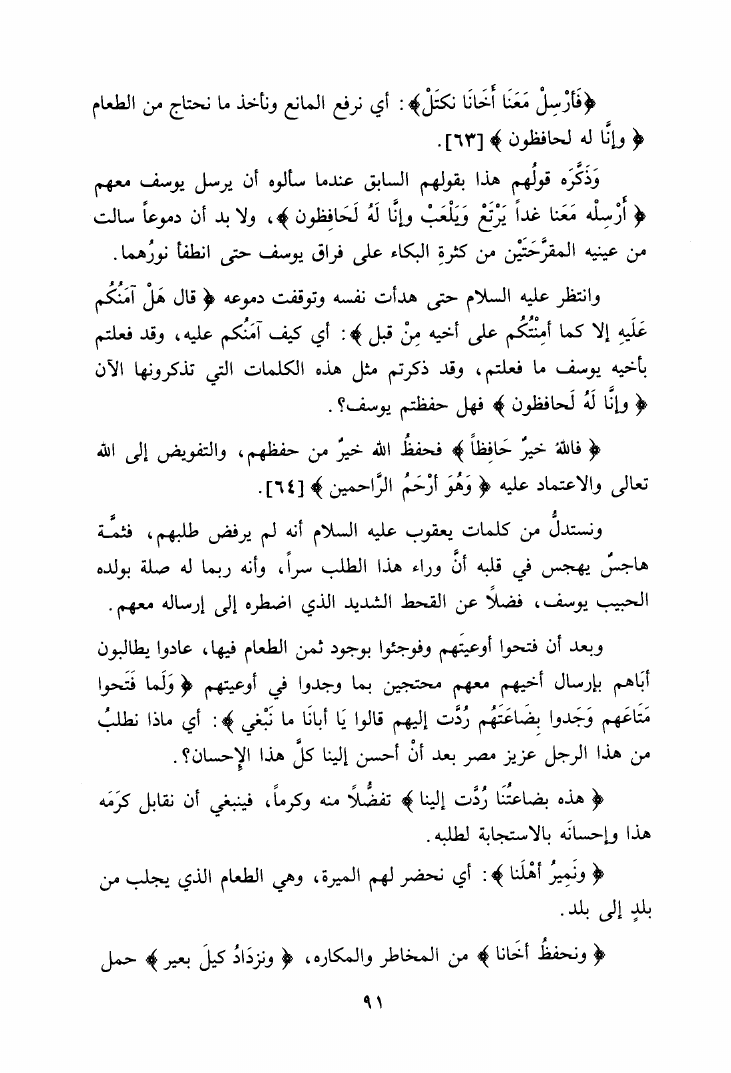 ﴿فَأَرْسِلْ مَعَنَا أَخَانَا نكتَلْ﴾: أي نرفع المانع ونأخذ ما نحتاج من الطعام
﴿ وإنَّا له لحافظون ﴾ [٦٣].
وَذَكَّرَه قولُهم هذا بقولهم السابق عندما سألوه أن يرسل يوسف معهم
﴿ أَرْسِلْه مَعَنا غداً يَرْتَعْ وَيَلْعَبْ وإنَّا لَهُ لَحَافِظون ﴾، ولا بد أن دموعاً سالت
من عينيه المقرَّحَتَيْن من كثرةِ البكاء على فراق يوسف حتى انطفأ نورُهما.
وانتظر عليه السلام حتى هدأت نفسه وتوقفت دموعه ﴿ قال هَلْ آمَنُكُم
عَلَيهِ إلا كما أمِنْتُكُم على أخيه مِنْ قبل ﴾: أي كيف آمَنُكم عليه، وقد فعلتم
بأخيه يوسف ما فعلتم، وقد ذكرتم مثل هذه الكلمات التي تذكرونها الآن
﴿ وإنَّا لَهُ لَحافظون ﴾ فهل حفظتم يوسف؟.
﴿ فاللهُ خيرٌ حَافِظاً ﴾ فحفظُ الله خيرٌ من حفظهم، والتفويض إلى الله
تعالى والاعتماد عليه ﴿ وَهُوَ أرْحَمُ الرَّاحمين ﴾ [٦٤].
ونستدلُّ من كلمات يعقوب عليه السلام أنه لم يرفض طلبهم، فثمَّـة
هاجسٌ يهجس في قلبه أنَّ وراء هذا الطلب سراً، وأنه ربما له صلة بولده
الحبيب يوسف، فضلاً عن القحط الشديد الذي اضطره إلى إرساله معهم.
وبعد أن فتحوا أوعيتَهم وفوجئوا بوجود ثمن الطعام فيها، عادوا يطالبون
أبَاهم بإرسال أخيهم معهم محتجين بما وجدوا في أوعيتهم ﴿ وَلَما فَتَحوا
مَتَاعَهم وَجَدوا بِضَاعَتَهُم رُدَّت إليهم قالوا يَا أبانَا ما نَبْغي ﴾: أي ماذا نطلبُ
من هذا الرجل عزيز مصر بعد أنْ أحسن إلينا كلَّ هذا الإحسان؟.
﴿ هذه بضاعتُنَا رُدَّت إلينا ﴾ تفضُّلاً منه وكرماً، فينبغي أن نقابل كرَمَه
هذا وإحسانَه بالاستجابة لطلبه.
﴿ ونَمِيرُ أهْلَنا ﴾: أي نحضر لهم الميرة، وهي الطعام الذي يجلب من
بلدٍ إلى بلد.
﴿ ونحفظُ أخَانا ﴾ من المخاطر والمكاره، ﴿ ونزدَادُ كيلَ بعير ﴾ حمل
٩١